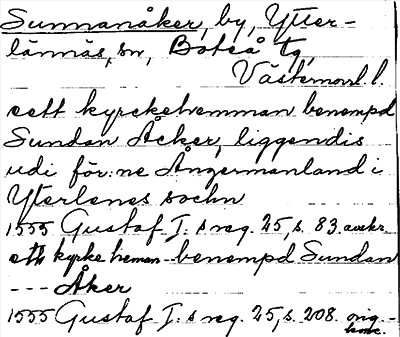 Sunnanåker, by, Ytter-
lännäs, sn, Boteå tg,
Västernorrl. l.
ett kyrckehemman benempd
Sundan Åcker, liggendis
udi för:ne Ångermanland i
Ytterlenes sochn
1555 Gustaf I:s reg. 25, s. 83. avskr.
ett kyrke heman benempd Sundan
--- Åker
1555 Gustaf I:s reg. 25, s. 208. orig.-
konc.